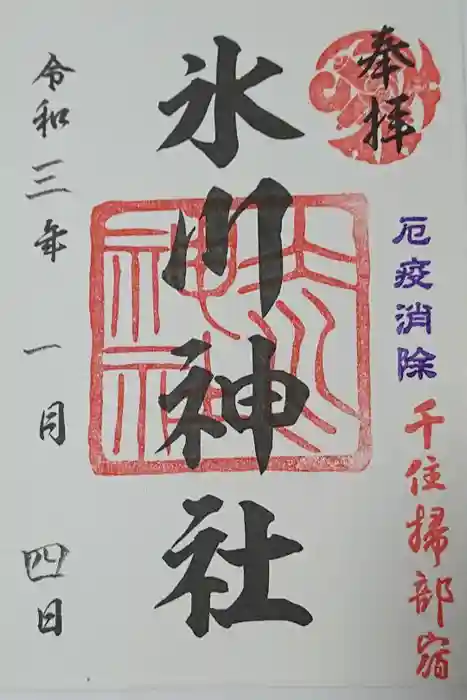 奉拝
厄疫消除
千住掃部宿
氷川神社
氷川
神社
令和三年一月四日